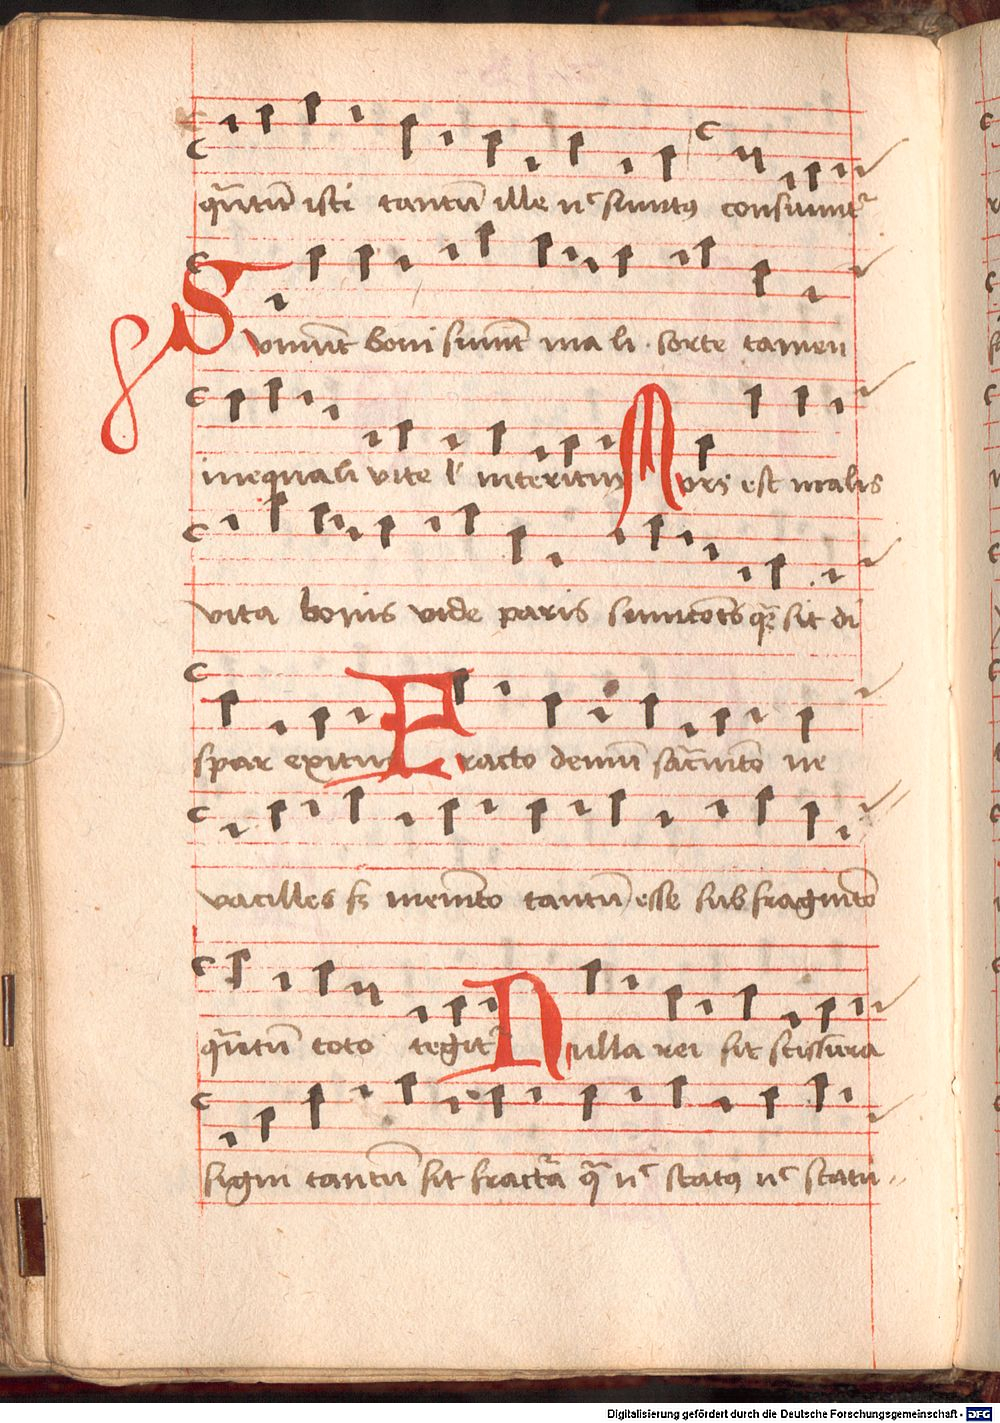 qᷓntū isti tantū ille nᶜ sumtꝰ consumitᷣ
Sumūt boni sumūt mali · sorte tamen
inequali vite lˡ interitus Mors est malis
vita bonis vide paris sumtōis qᷓ sit di
spar exitus Fracto demū sacᷓmēto ne
vacilles sꝫ memēto tantū esse sub fragmēto
qᷓntū toto tegitᷣ Nulla rei fit scissura
signi tantū fit fractᷓa qᷓ nᶜ statꝰ nᶜ statu〃
Digitalisierung gefördert durch die Deutsche Forschungsgemeinschaft - DFG